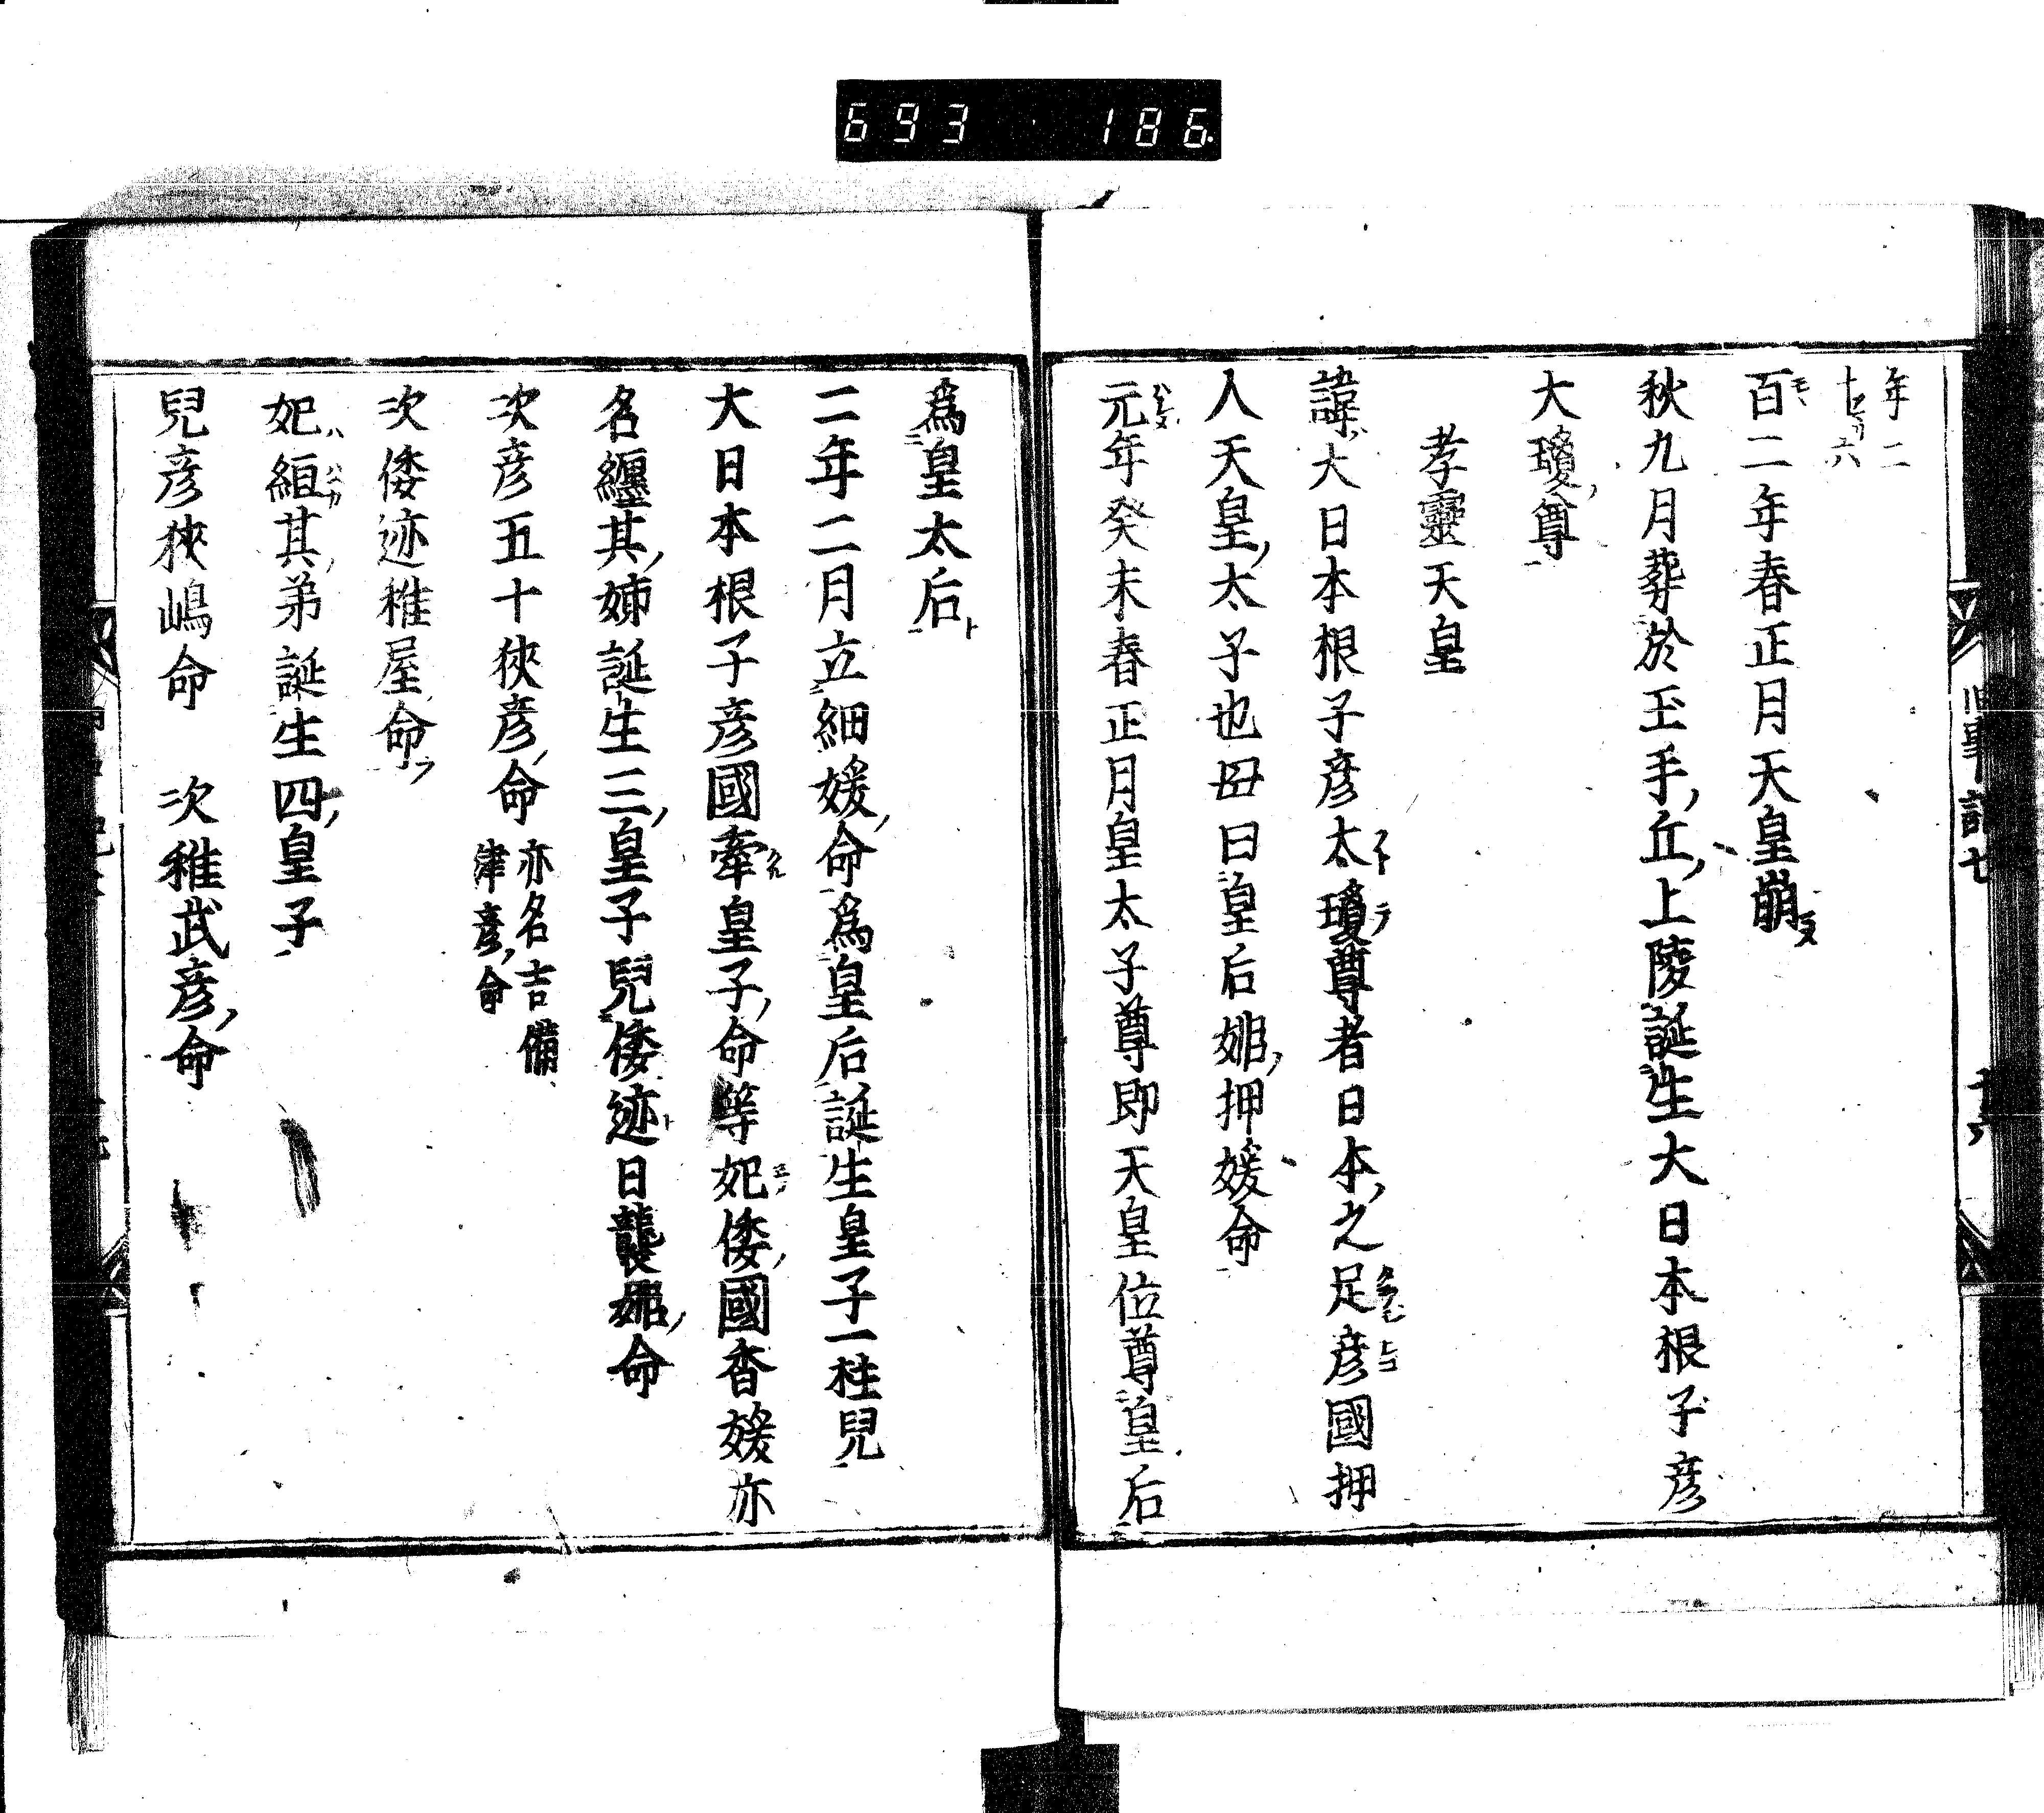 693 186
年二
十六
百二年春正月天皇崩
秋九月葬於玉手丘上陵誕生大日本根子彦
大瓊尊
孝靈天皇
諱大日本根子彦太瓊尊者日本之足彦國押
人天皇太子也母曰皇后姫押媛命
元年癸未春正月皇太子尊即天皇位尊皇后
爲皇太后
二年二月立細媛命爲皇后誕生皇子一柱兒
大日本根子彦國牽皇子命等妃倭國香媛亦
名纏其姉誕生三皇子兒倭迹日襲姫命
次彦五十狹彦命亦名吉備
津彦命
次倭迹稚屋命
妃絙其弟誕生四皇子
兒彦狹嶋命 次稚武彦命
旧事記七
十六